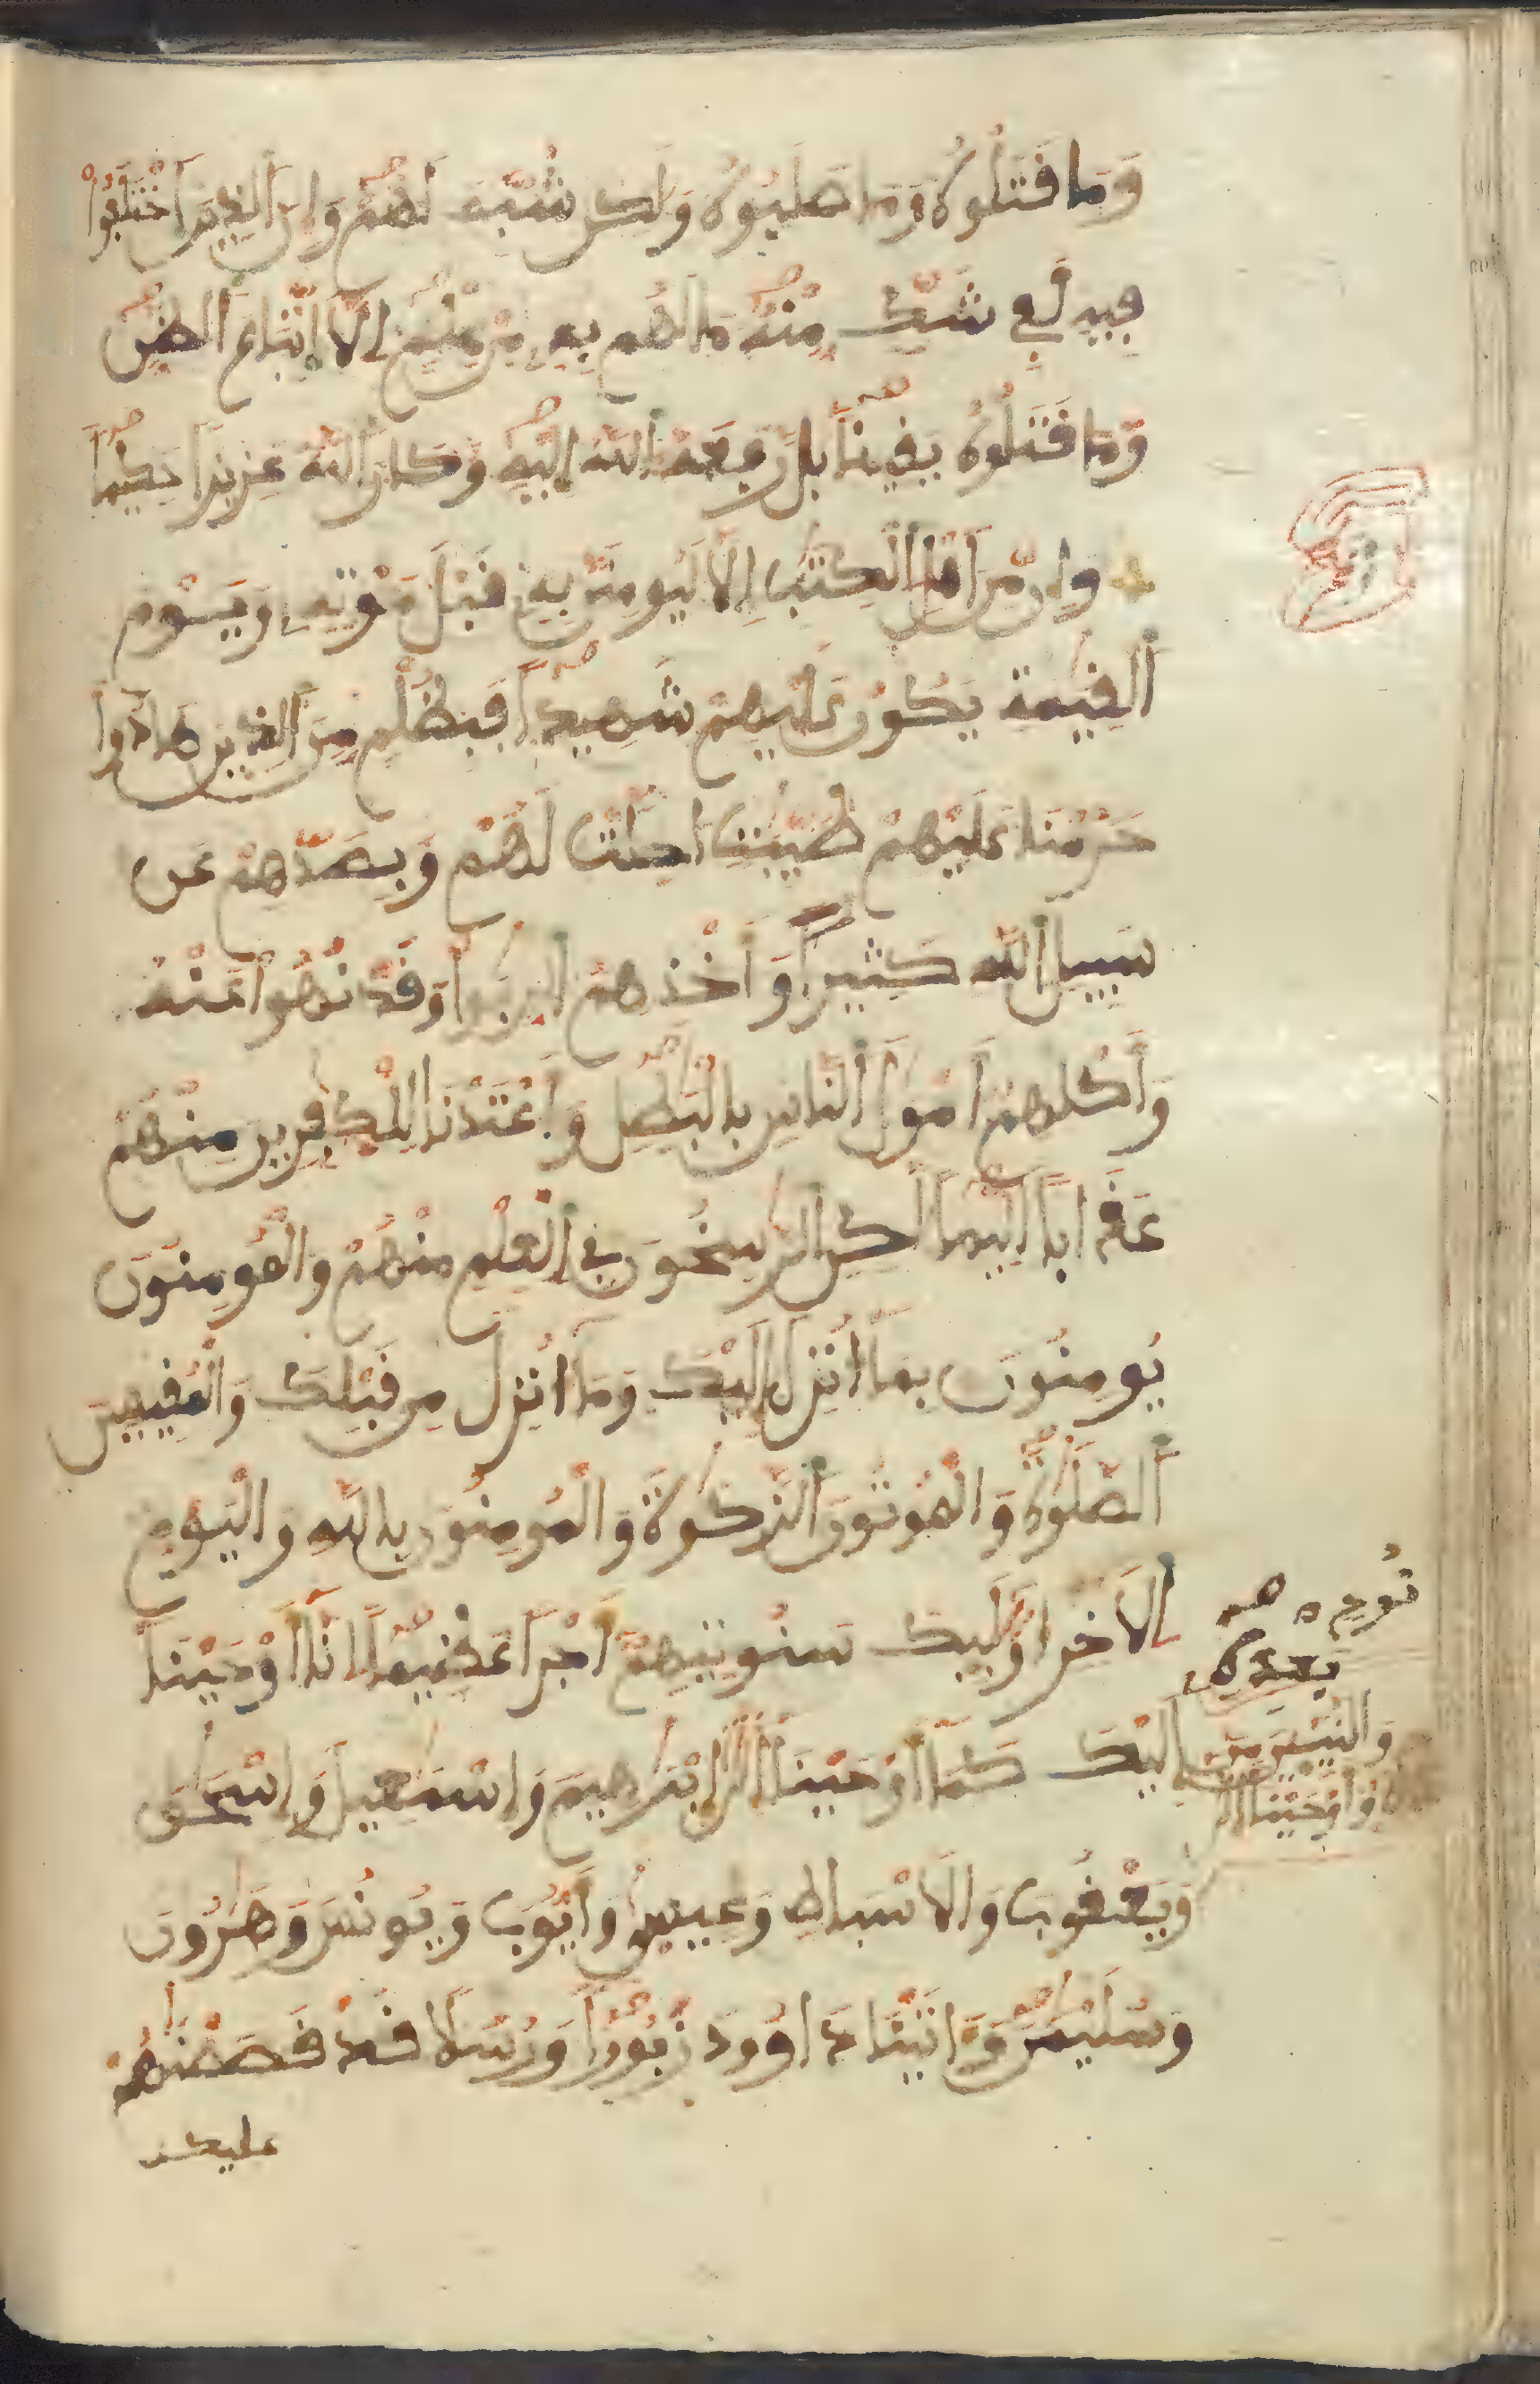 وَمَا قَتَلُوهُ وَمَا صَلَبُوهُ وَلَكِن شُبِّهَ لَهُمْ وَإِنَّ الَّذِينَ اَخْتَلَفُواْ
فِيهِ لَفِي شَكٍّ مِّنْهُ مَا لَهُم بِهِ مِنْ عِلْمٍ إِلَّا اَتِّبَاعَ اَلظَّنِّ
وَمَا قَتَلُوهُ يَقِيناً بَل رَّفَعَهُ اُللَّهُ إِلَيْهِ وَكَانَ اَللَّهُ عَزِيزاً حَكِيماً
وَإِن مِّنَ اَهْلِ اِلْكِتَبِ إِلَّا لَيُومِنَنَّ بِهِ قَبْلَ مَوْتِهِ وَيَوْمَ
اَلْقِيَمَةِ يَكُونُ عَلَيْهِمْ شَهِيداً فَبِظُلْمٍ مِّنَ اَلَّذِينَ هَادُواْ
حَرَّمْنَا عَلَيْهِمْ طَيِّبَتٍ اُحِلَّتْ لَهُمْ وَبِصَدِّهِمْ عَن
سَبِيلِ اِللَّهِ كَثِيراً وَأَخْذِهِمُ اُلرِّبَواْ وَقَدْ نُهُواْ عَنْهُ
وَأَكْلِهِمْ أَمْوَلَ اَلنَّاسِ بِالْبَطِلِ وَأَعْتَدْنَا لِلْكَفِرِينَ مِنْهُمْ
عَذَاباً اَلِيماً لَّكِنِ اِلرَّسِخُونَ فِي اِلْعِلْمِ مِنْهُمْ وَالْمُومِنُونَ
يُومِنُونَ بِمَا أُنزِلَ إِلَيْكَ وَمَا أُنزِلَ مِن قَبْلِكَ وَالْمُقِيمِينَ
اَلصَّلَوةَ وَالْمُوتُونَ اَلزَّكَوةَ وَالْمُومِنُونَ بِاللَّهِ وَالْيَوْمِ
اِلَاخِرِ أُوْلَئِكَ سَنُوتِيهِمْ أَجْراً عَظِيماً اِنَّا أَوْحَيْنَا
إِلَيْكَ كَمَا أَوْحَيْنَا إِلَى
نُوحٍ
وَالنَّبِيِّينَ مِن
بَعْدِهِ
وَأَوْحَيْنَا إِلَى إِبْرَهِيمَ وَإِسْمَعِيلَ وَإِسْحَقَ
وَيَعْقُوبَ وَالَاسْبَاطِ وَعِيسَى وَأَيُّوبَ وَيُونُسَ وَهَرُونَ
وَسُلَيْمَنَ وَءَاتَيْنَا دَاوُودَ زَبُوراً وَرُسُلًا قَدْ قَصَصْنَهُمْ
عليك